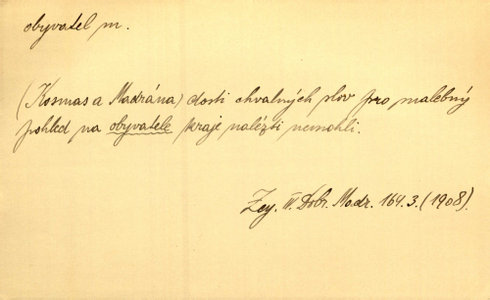 obyvatel m.
(Kosmas a Madrána) dosti chvalných slov pro malebný
pohled na obyvatele kraje nalézti nemohli.
Zey. II. Dobr. Madr. 164. 3. (1908).